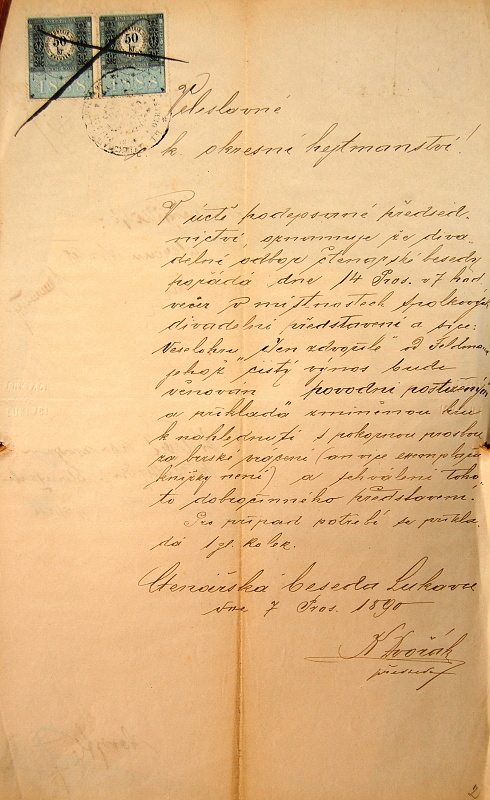 50
kr.
50
kr.
1888
1888
Veleslavné
k. k. okresní hejtmanství!
V úctě podepsané předsed-
nictví oznamuje že diva-
delní odbor čtenářské besedy
pořádá dne 14 Pros. v 7 hod
večer v místnostech spolkových
divadelní představení a sice:
Veselohru „Jen zdvořile" od
jehož čistý výnos bude
věnován povodní postiženým
a příkladá zmíněnou hru
k nahlédnutí s pokornou prosbou
za brzské vrácení (an více exemplárů
knížky není) a schválení toho-
to dobročinného představení.
Pro případ potřebí se příkla-
dá 1 zl. kolek.
Čtenářská beseda Lukavec
dne 7 Pros. 1890
K Dvořák
předseda
2